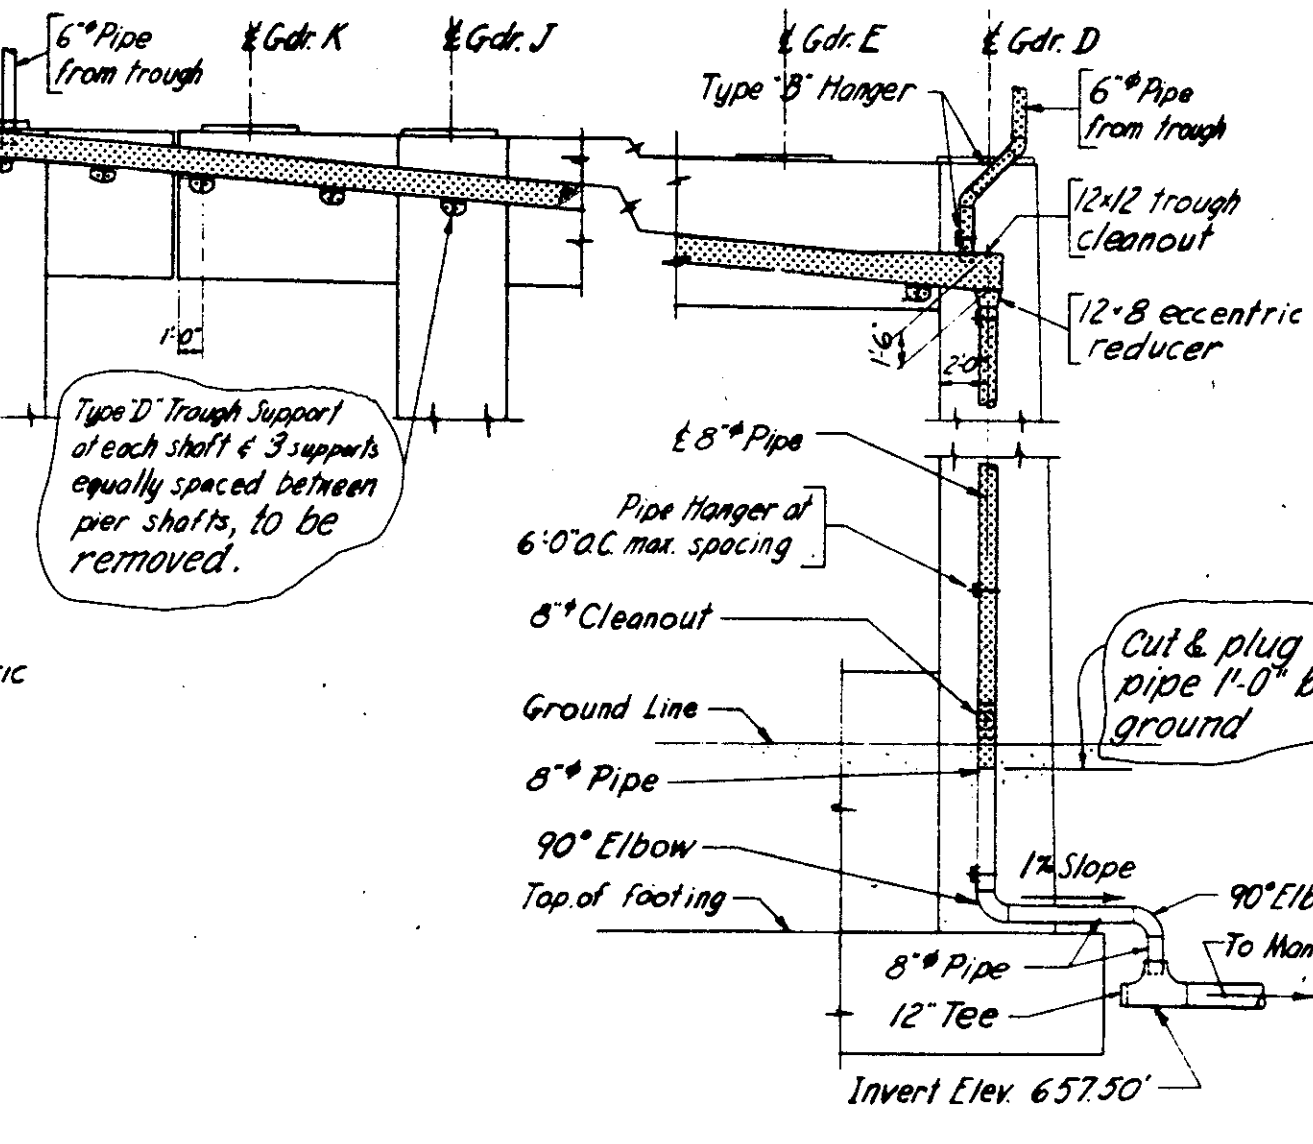 6"ϕ Pipe
from trough
℄ Gdr. K
℄ Gdr. J
℄ Gdr. E
℄ Gdr. D
Type "B" Hanger
6"ϕ Pipe
from trough
12x12 trough
cleanout
12x8 eccentric
reducer
1'-0"
1'-6"
2'-0"
Type "D" Trough Support
at each shaft & 3 supports
equally spaced between
pier shafts, to be
removed.
℄ 8"ϕ Pipe
Pipe Hanger at
6'-0" O.C. max. spacing
8"ϕ Cleanout
Ground Line
8"ϕ Pipe
90° Elbow
Top of footing
Cut & plug
pipe 1'-0" b
ground
1% Slope
90° Elb
To Man
8"ϕ Pipe
12" Tee
Invert Elev. 657.50'